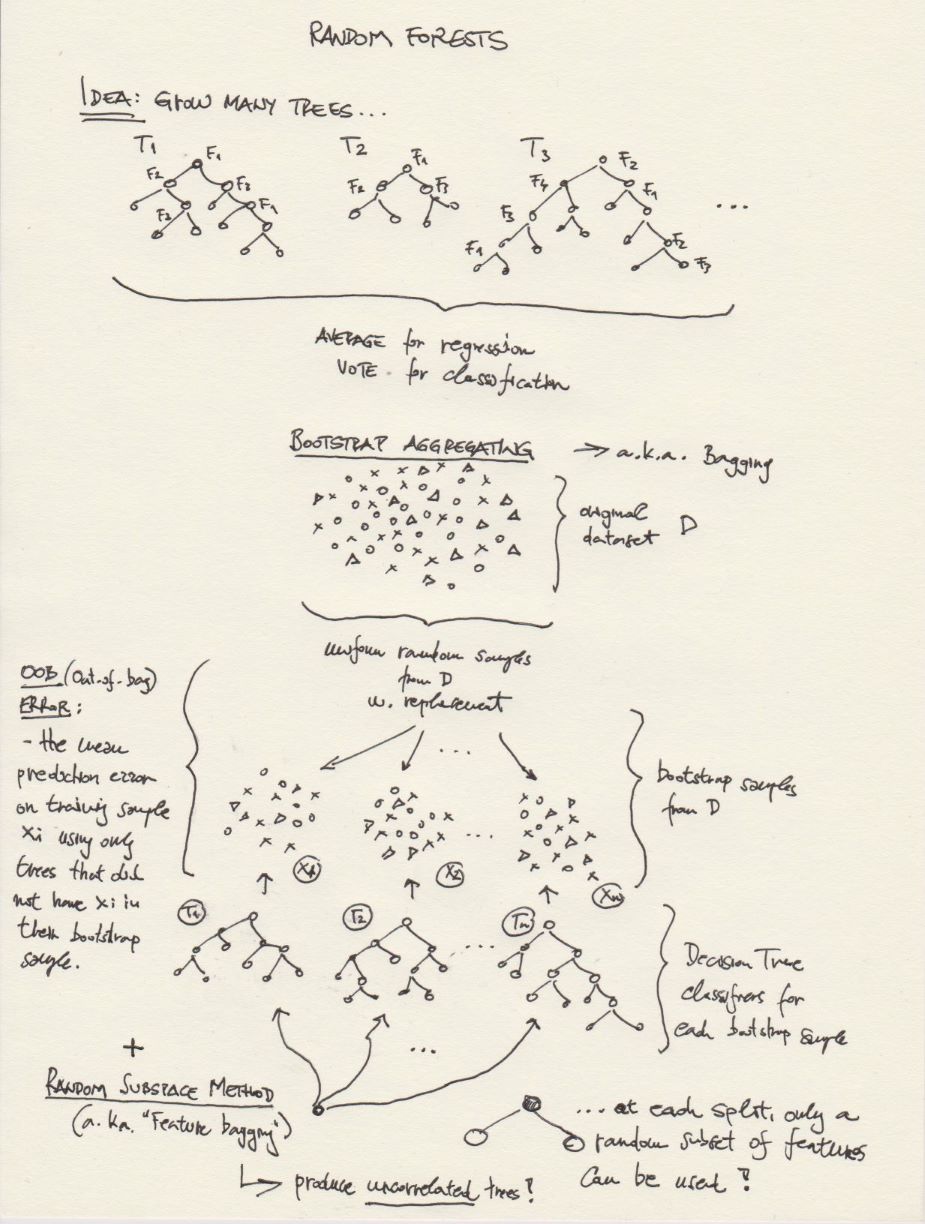 RANDOM FORESTS
IDEA: GROW MANY TREES...
T1
F1
F2
F3
F3
F1
T2
F1
F2
F3
T3
F2
F4
F1
F3
F1
F2
F3
...
AVERAGE for regression
VOTE for classification
BOOTSTRAP AGGREGATING
→ a.k.a. Bagging
original
dataset D
uniform random samples
from D
w. replacement
...
OOB (Out-of-bag)
ERROR:
- the mean
prediction error
on training sample
xi using only
trees that did
not have xi in
their bootstrap
sample.
bootstrap samples
from D
...
X1
X2
Xn
T1
T2
...
Tn
Decision Tree
classifiers for
each bootstrap sample
...
+
RANDOM SUBSPACE METHOD
(a.k.a. "Feature bagging")
↳ produce uncorrelated trees!
... at each split, only a
random subset of features
can be used!